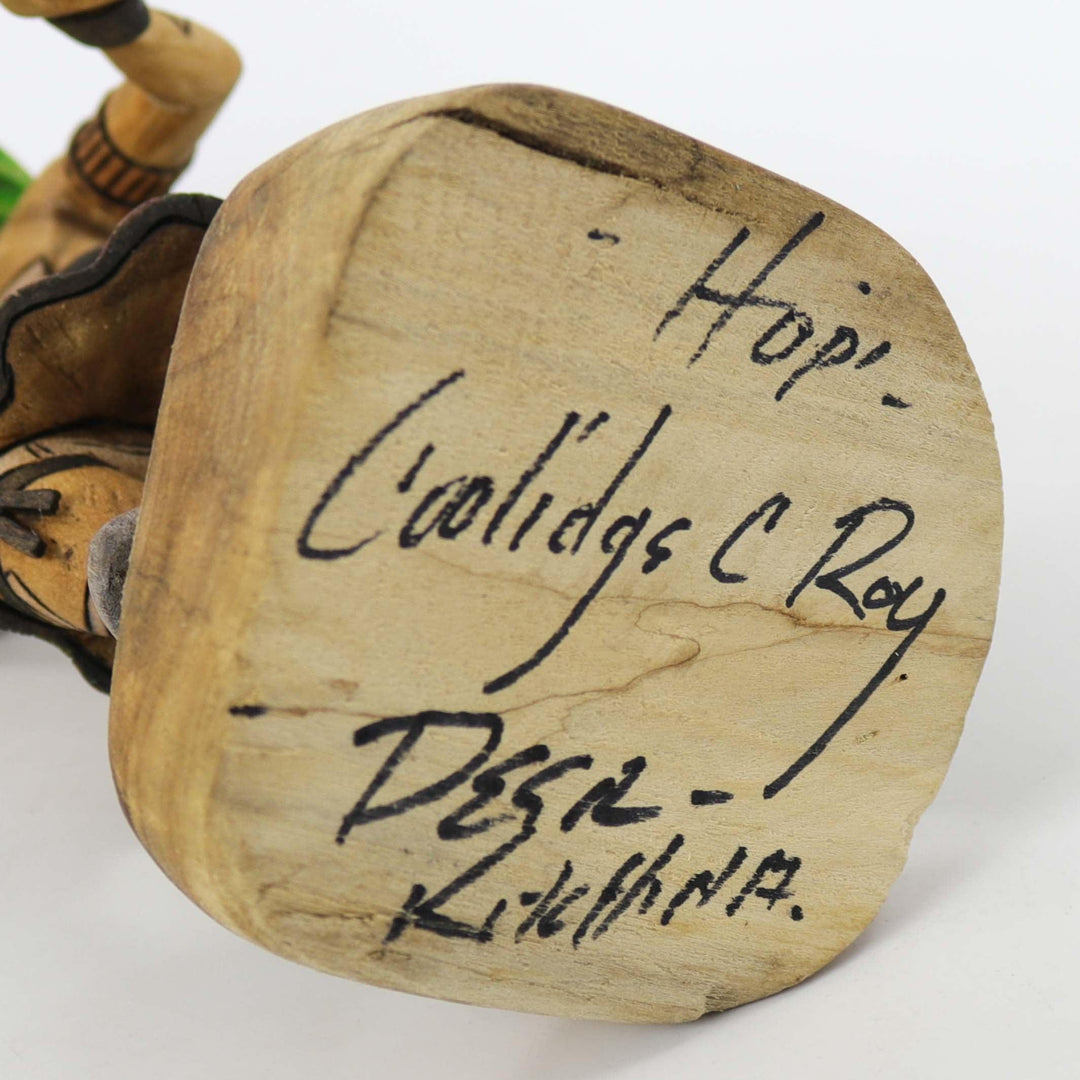 - Hopi -
Coolidge C Roy
- DEER -
KAtCHINA.